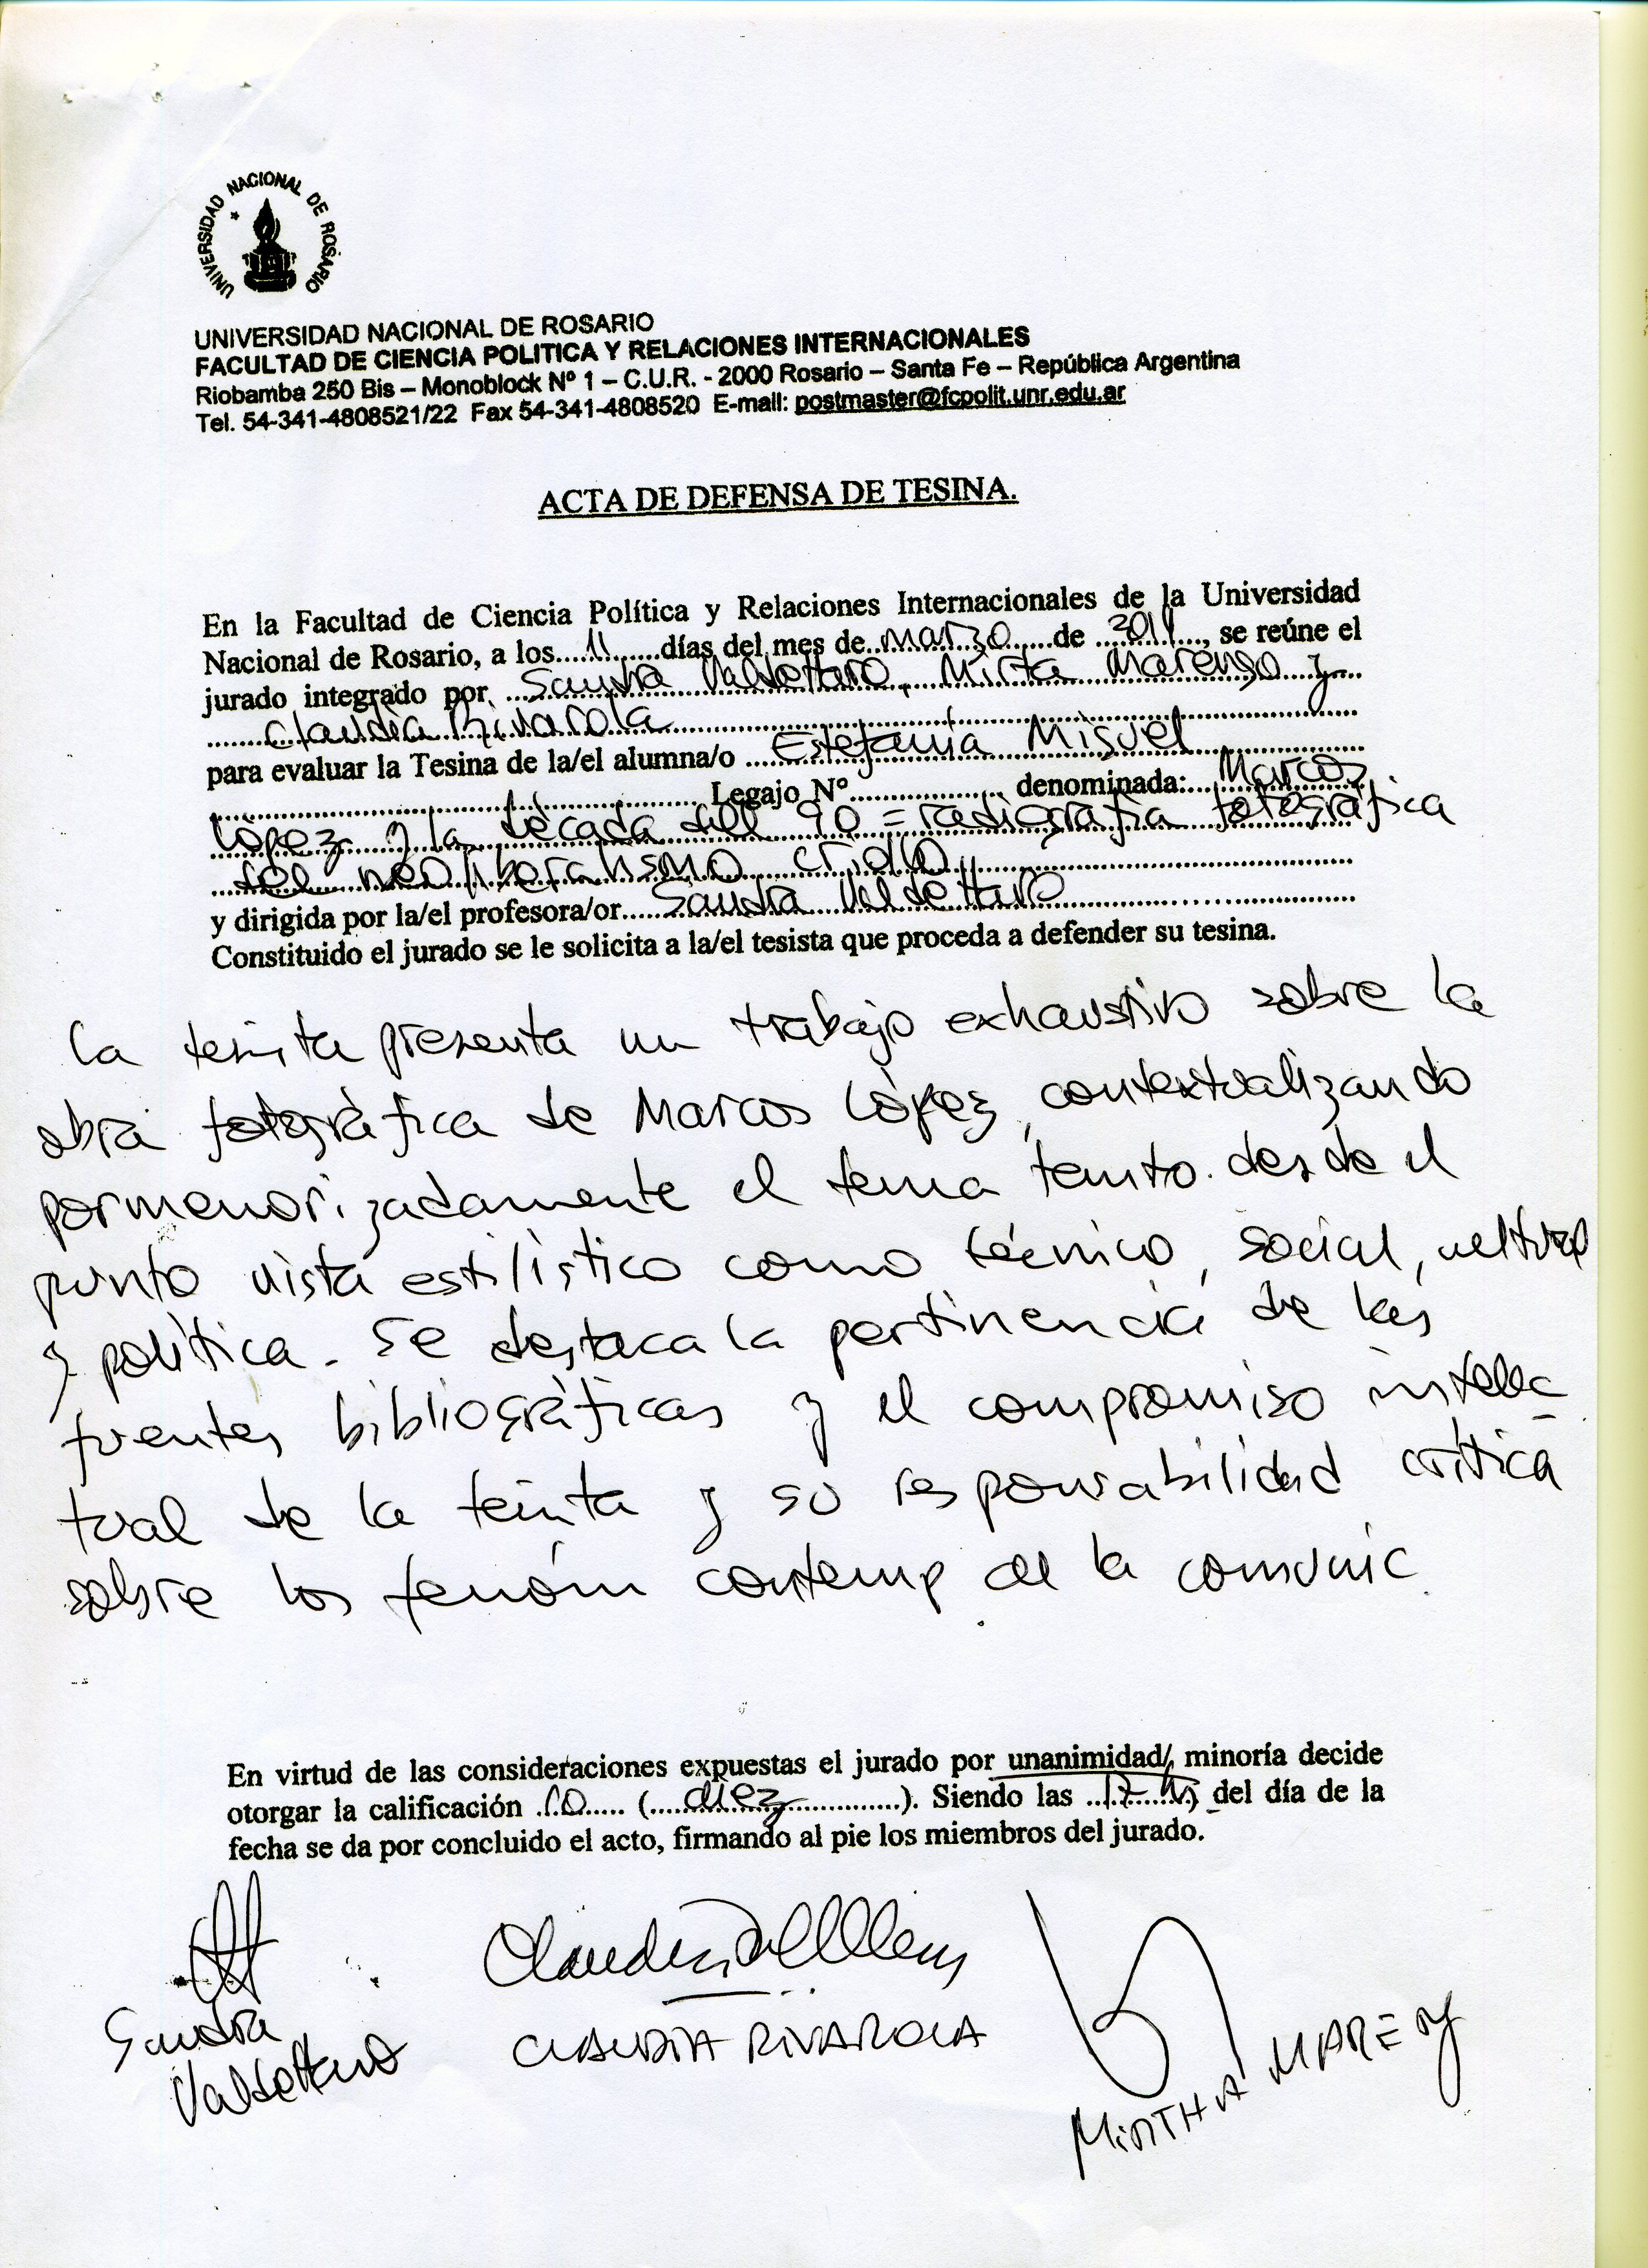 UNIVERSIDAD NACIONAL DE ROSARIO
UNIVERSIDAD NACIONAL DE ROSARIO
FACULTAD DE CIENCIA POLITICA Y RELACIONES INTERNACIONALES
Riobamba 250 Bis – Monoblock Nº 1 – C.U.R. - 2000 Rosario – Santa Fe – República Argentina
Tel. 54-341-4808521/22 Fax 54-341-4808520 E-mail: postmaster@fcpolit.unr.edu.ar
ACTA DE DEFENSA DE TESINA.
En la Facultad de Ciencia Política y Relaciones Internacionales de la Universidad
Nacional de Rosario, a los 11 días del mes de marzo de 2011, se reúne el
jurado integrado por Sandra Valdettaro, Mirta Marengo y
Claudia Rivarola
para evaluar la Tesina de la/el alumna/o Estefanía Miguel
Legajo Nº denominada: Marcos
López y la década del 90 = radiografía fotográfica
del neoliberalismo criollo
y dirigida por la/el profesora/or Sandra Valdettaro
Constituido el jurado se le solicita a la/el tesista que proceda a defender su tesina.
La tesista presenta un trabajo exhaustivo sobre la
obra fotográfica de Marcos López, contextualizando
pormenorizadamente el tema tanto desde el
punto vista estilístico como técnico, social, cultural
y política. Se destaca la pertinencia de las
fuentes bibliográficas y el compromiso intelec-
tual de la tesista y su responsabilidad crítica
sobre los fenóm contemp de la comunic.
En virtud de las consideraciones expuestas el jurado por unanimidad/ minoría decide
otorgar la calificación 10 (diez). Siendo las 17 hs del día de la
fecha se da por concluido el acto, firmando al pie los miembros del jurado.
Sandra
Valdettaro
CLAUDIA RIVAROLA
MIRTHA MARENGO